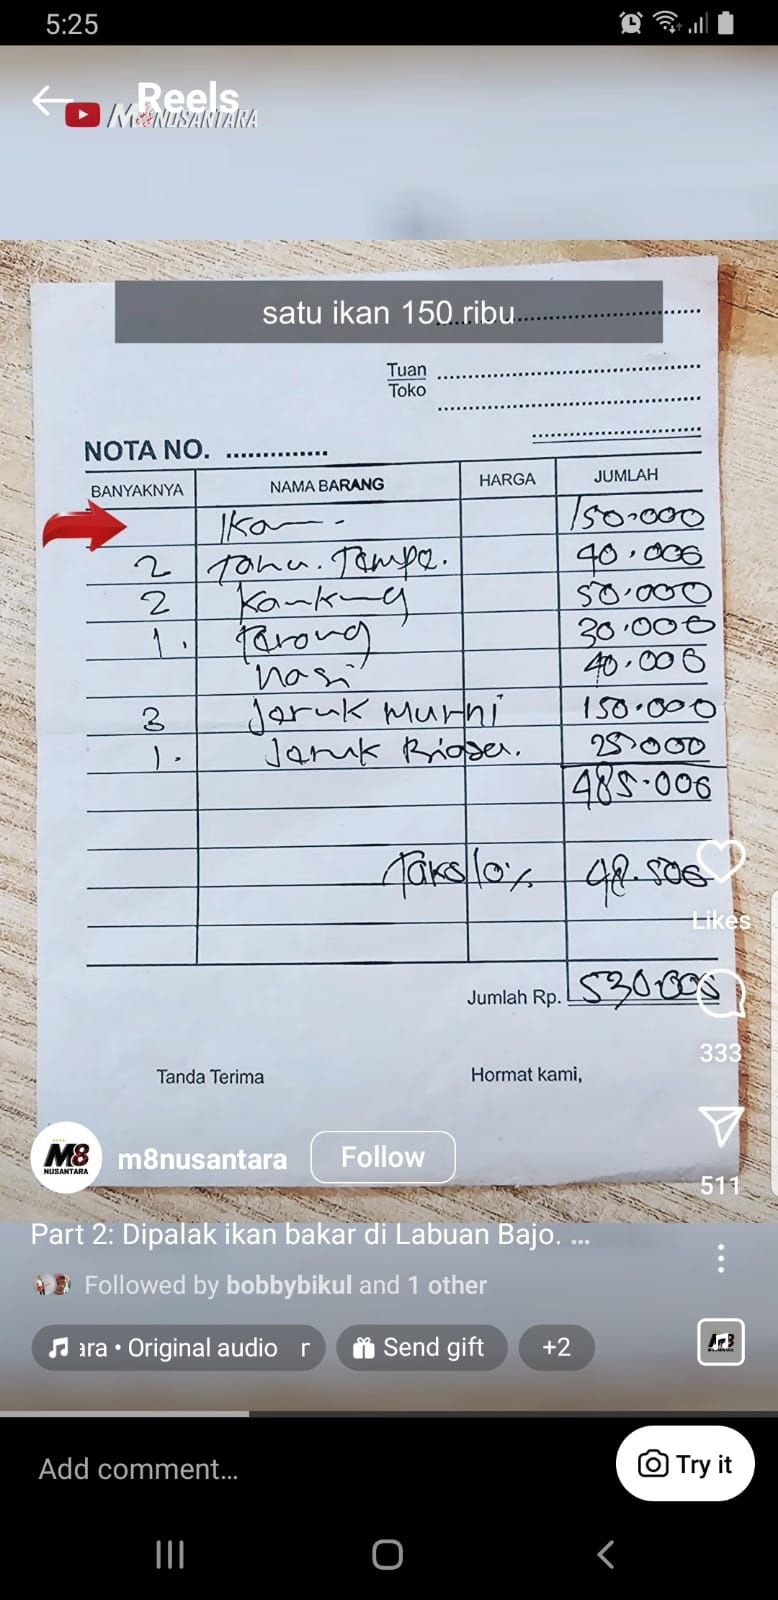 5:25
Reels
M8NUSANTARA
satu ikan 150 ribu
Tuan
Toko
NOTA NO. ..............
BANYAKNYA NAMA BARANG HARGA JUMLAH
Ikan. 150.000
2 Tahu. Tampe. 40.000
2 Kankung 50.000
1. Tarong 30.000
Nasi 40.000
3 Jeruk Murni 150.000
1. Jeruk 25.000
485.000
Taks 10% 48.500
Jumlah Rp. 530.000
Tanda Terima Hormat kami,
Likes
333
511
M8 NUSANTARA
m8nusantara Follow
Part 2: Dipalak ikan bakar di Labuan Bajo. ...
Followed by bobbybikul and 1 other
ara • Original audio r Send gift +2
Add comment... Try it